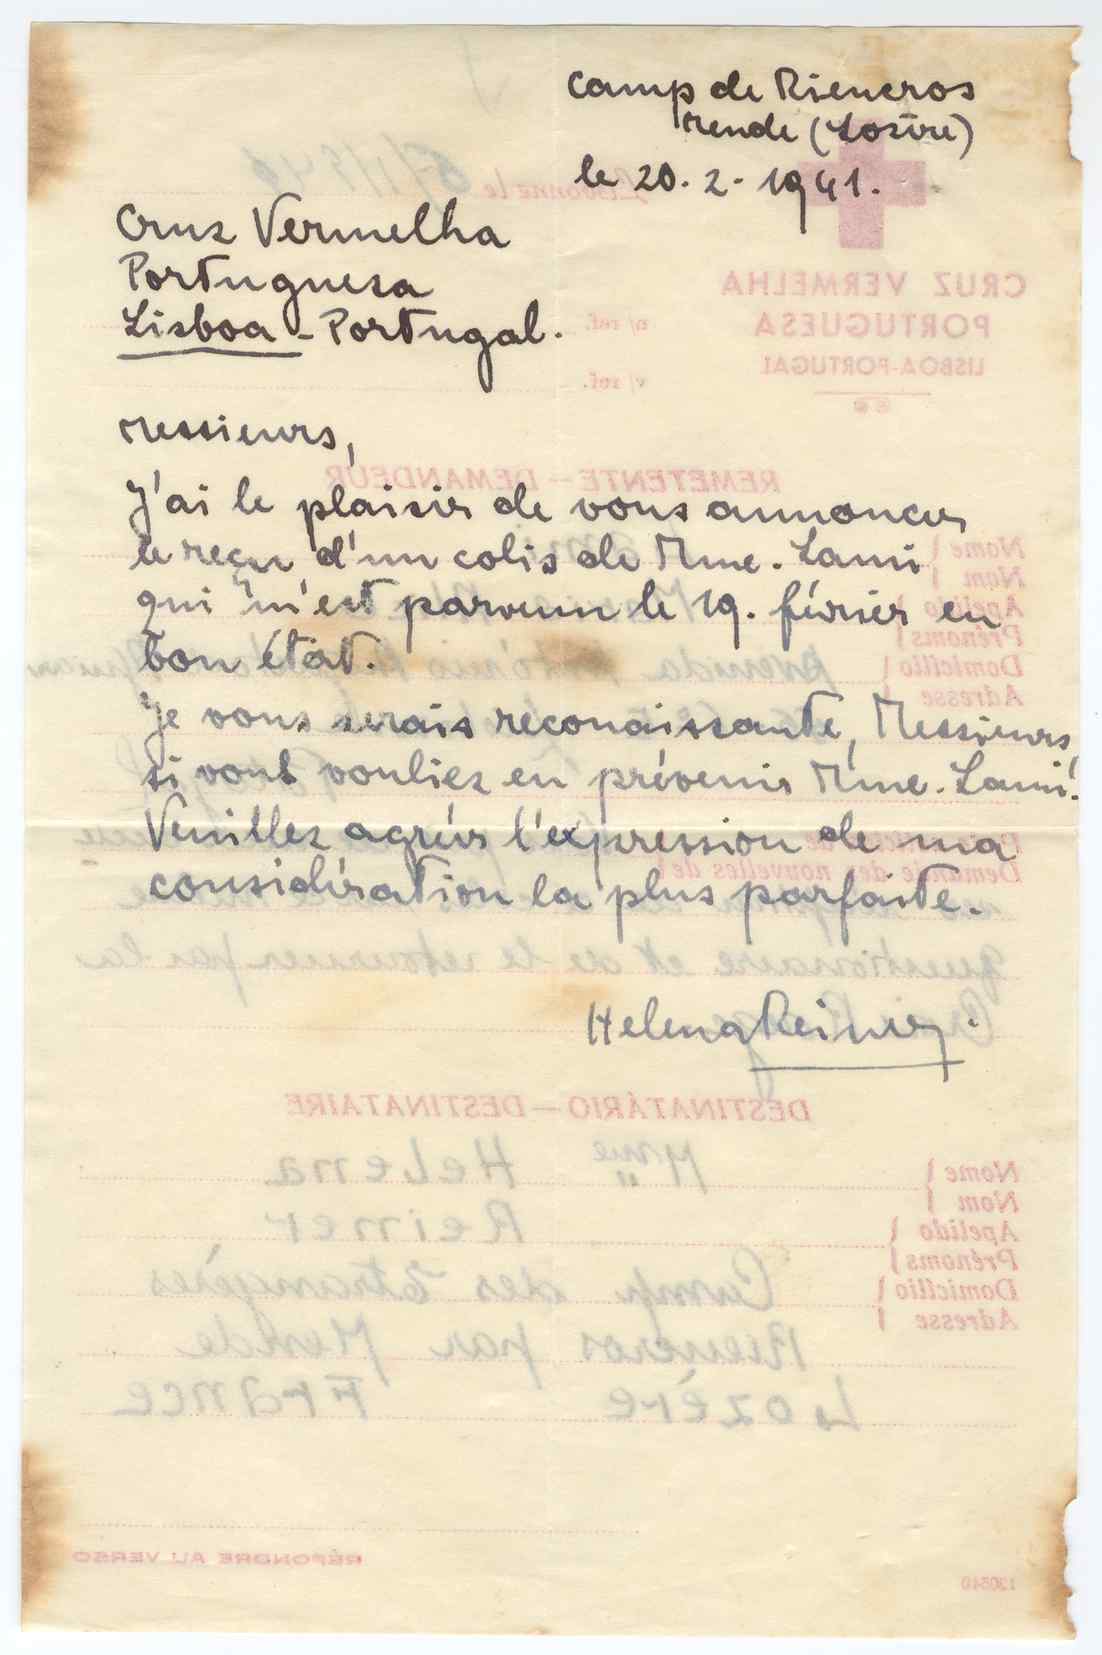 Camp de Rieucros
Mende (Lozère)
le 20. 2. 1941.
Cruz Vermelha
Portuguesa
Lisboa - Portugal.
Messieurs,
J'ai le plaisir de vous annoncer
le reçu d'un colis de Mme. Lami
qui m'est parvenu le 19. février en
bon état.
Je vous serais reconaissante, Messieurs,
si vous vouliez en prévenir Mme. Lami.
Veuillez agréer l'expression de ma
considération la plus parfaite.
Helena Reimer.
CRUZ VERMELHA
PORTUGUESA
LISBOA-PORTUGAL
Lisbonne le
n/ ref.
v/ ref.
REMETENTE — DEMANDEUR
Nome
Nom
Apelido
Prénoms
Domicílio
Adresse
Avenida António
Demande des nouvelles de
questionaire et de le retourner par la
DESTINATÁRIO — DESTINATAIRE
Nome
Nom
Mme Helena
Apelido
Prénoms
Reimer
Domicílio
Adresse
Camp des Etrangères
Rieucros par Mende
Lozère France
RÉPONDRE AU VERSO